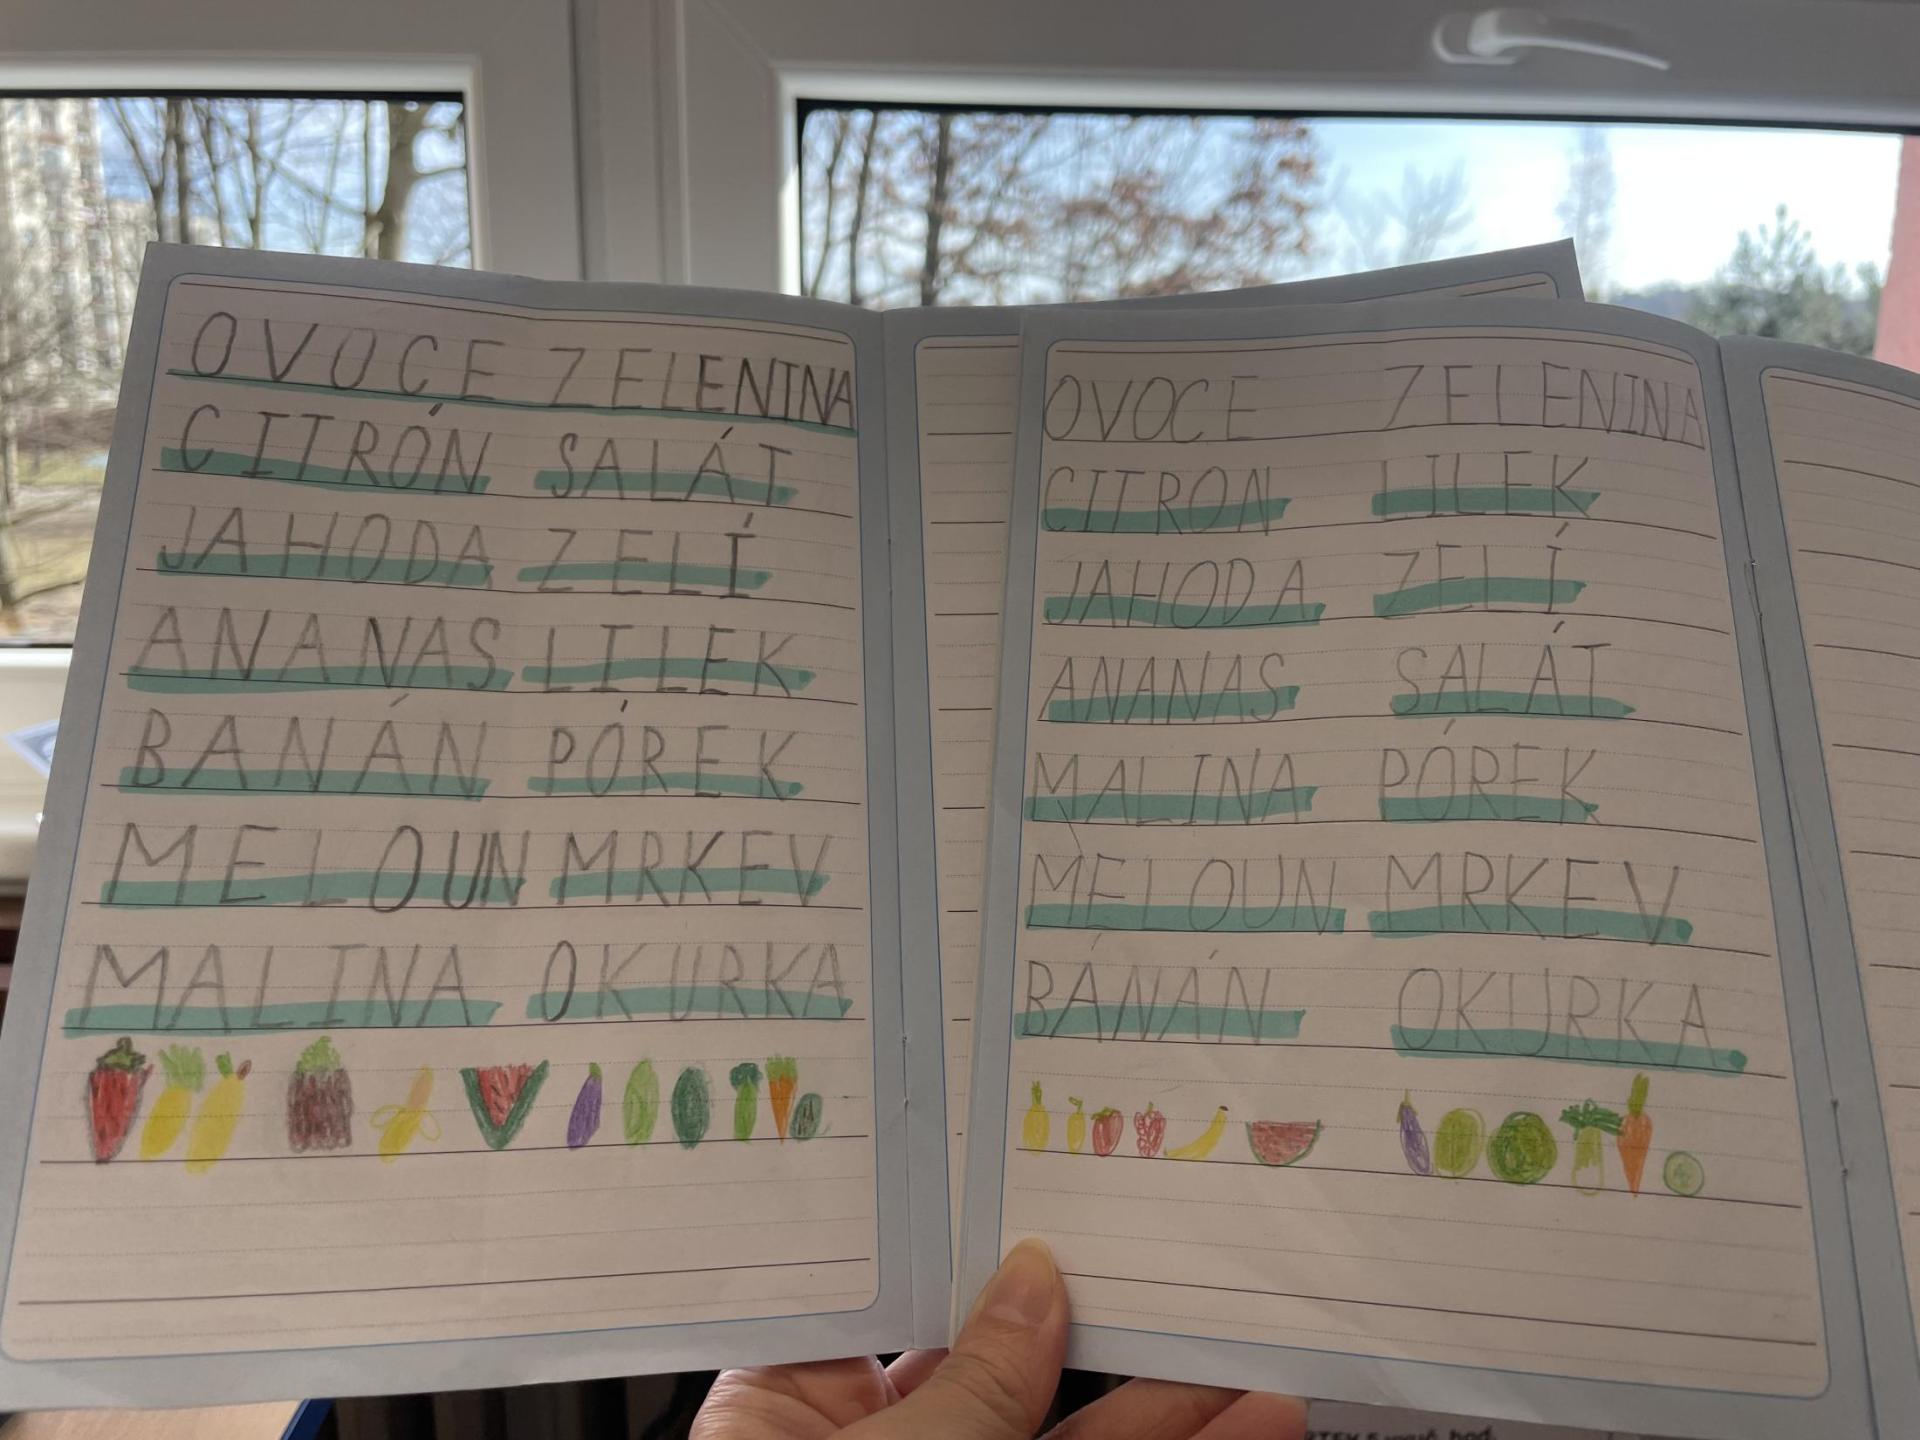 OVOCE ZELENINA
CITRÓN SALÁT
JAHODA ZELÍ
ANANAS LILEK
BANÁN PÓREK
MELOUN MRKEV
MALINA OKURKA
OVOCE ZELENINA
CITRON LILEK
JAHODA ZELÍ
ANANAS SALÁT
MALINA PÓREK
MELOUN MRKEV
BÁNÁN OKURKA